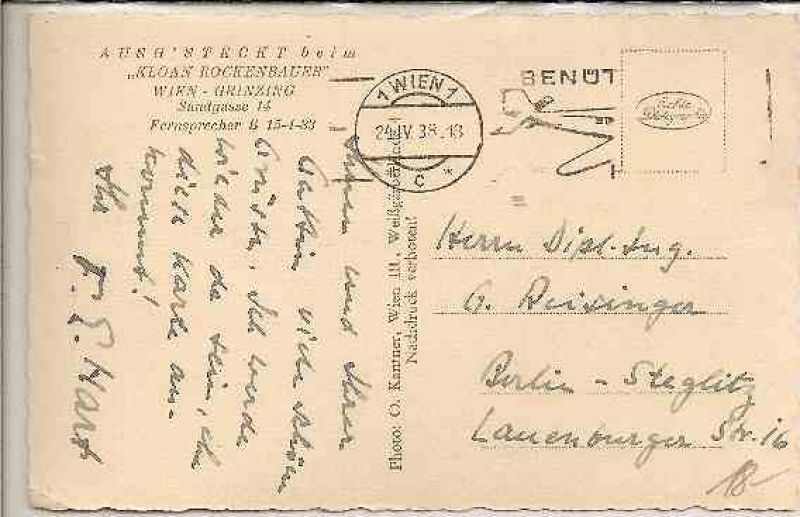 AUSG'STECKT beim
„KLOAN ROCKENBAUER"
WIEN - GRINZING
Sandgasse 14
Fernsprecher B 15-4-33
1 WIEN 1
24.IV.38.13
C *
BENÜT
Echte
Photographie
Ihnen und Ihrer
Gattin viele schöne
Grüße, ich werde
wieder da sein, ehe
diese Karte an-
kommt!
Ihr
Hart
Photo: O. Kantner, Wien III., 
Nachdruck verboten!
Herrn Dipl.-Ing.
G. Reisinger
Berlin - Steglitz
Lauenburger Str. 16